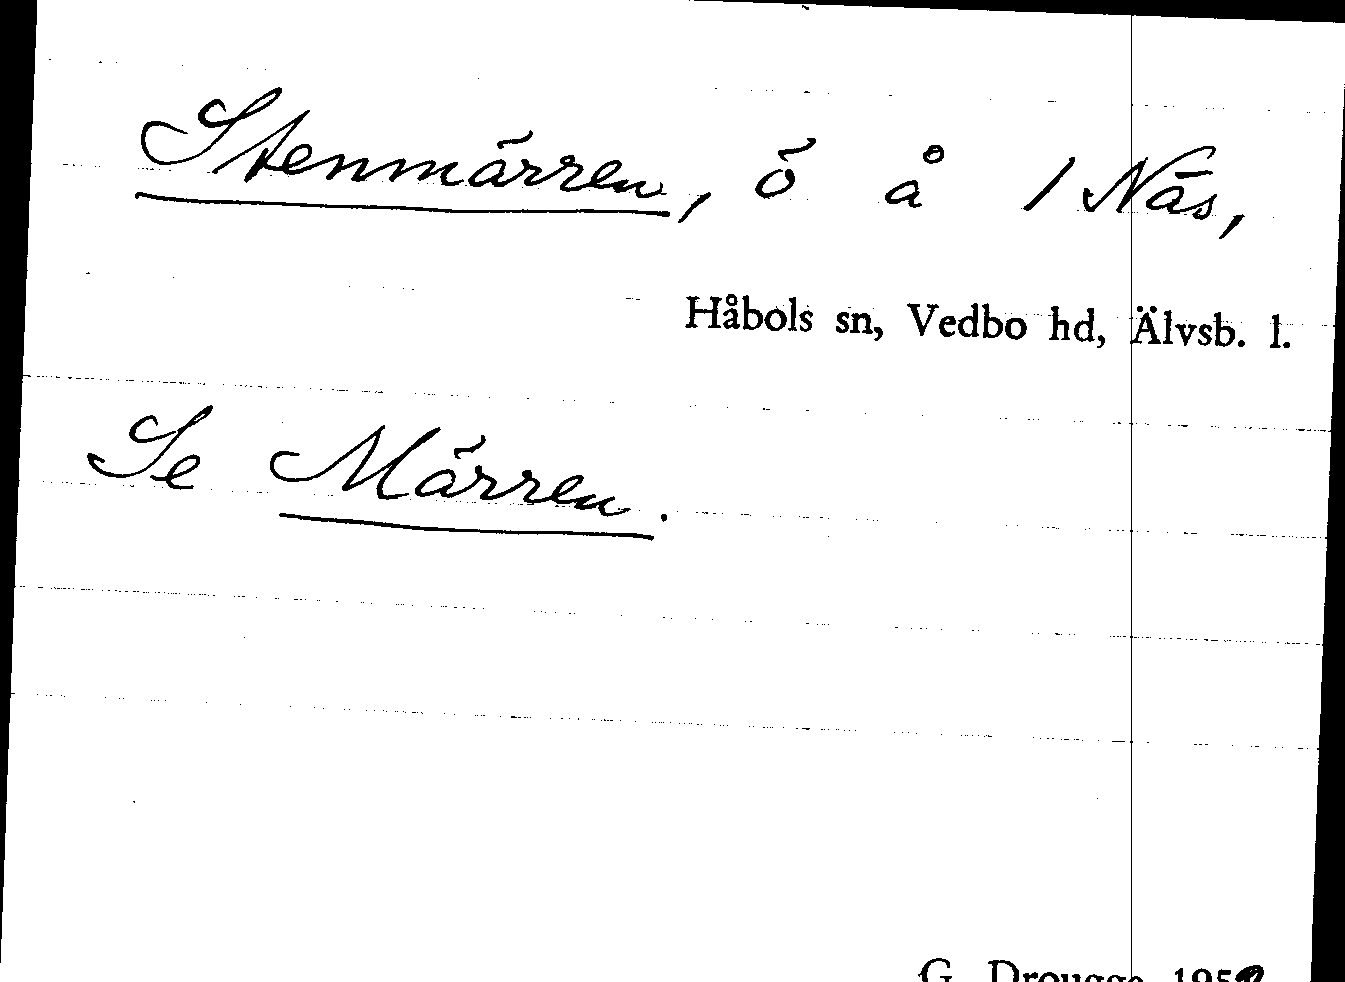 Stenmärren, ö å 1 Näs,
Håbols sn, Vedbo hd, Älvsb. l.
Se Märren.
G. Drougge